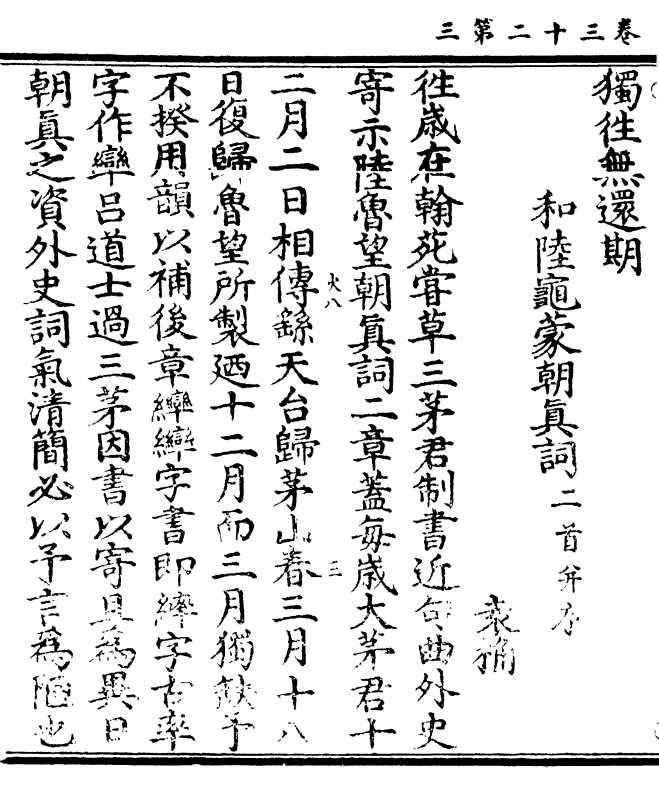 卷三十二第三
獨徃無還期
和陸龜蒙朝眞詞二首并序
袁桷
徃歲在翰苑嘗草三茅君制書近句曲外史
寄示陸魯望朝眞詞二章蓋每歲大茅君十
二月二日相傳繇天台歸茅山春三月十八
日復歸魯望所製廼十二月而三月獨缺予
不揆用韻以補後章
字書即繂字古率
字作㘘呂道士過三茅因書以寄且為異日
朝眞之資外史詞氣清簡必以予言為陋也